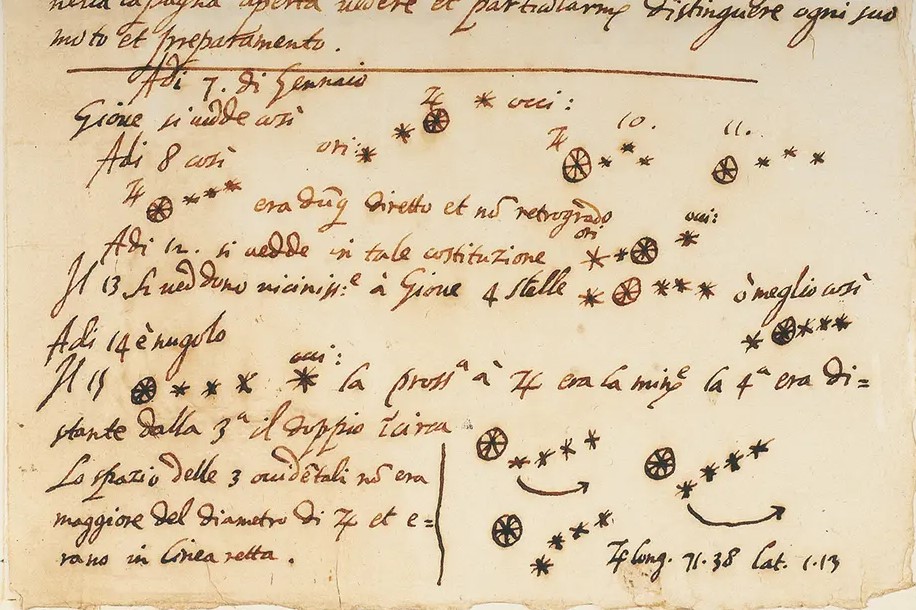 nella capagna aperta vedere et particularmẽ distinguere ogni suo
moto et preparamento.
Adi 7. di Gennaio
Giove si vedde così
ori: ♃ occi:
Adi 8 così
♃
♃ 10. 11.
era dũq̃ diretto et nõ retrogrado
Adi 12. si vedde in tale costituzione
ori: occi:
Il 13 si veddono vicinisS:ᵉ à Giove 4 stelle
ò meglio così
Adi 14 è nugolo
Il 15 occi: la prossᵃ à ♃ era la minẽ la 4ᵃ era di=
stante dalla 3ᵃ il doppio ĩcirca
Lo spazio delle 3 ouidẽtali nõ era
maggiore del diametro di ♃ et e=
rano in linea retta.
♃ long. 71.38 lat. 1.13